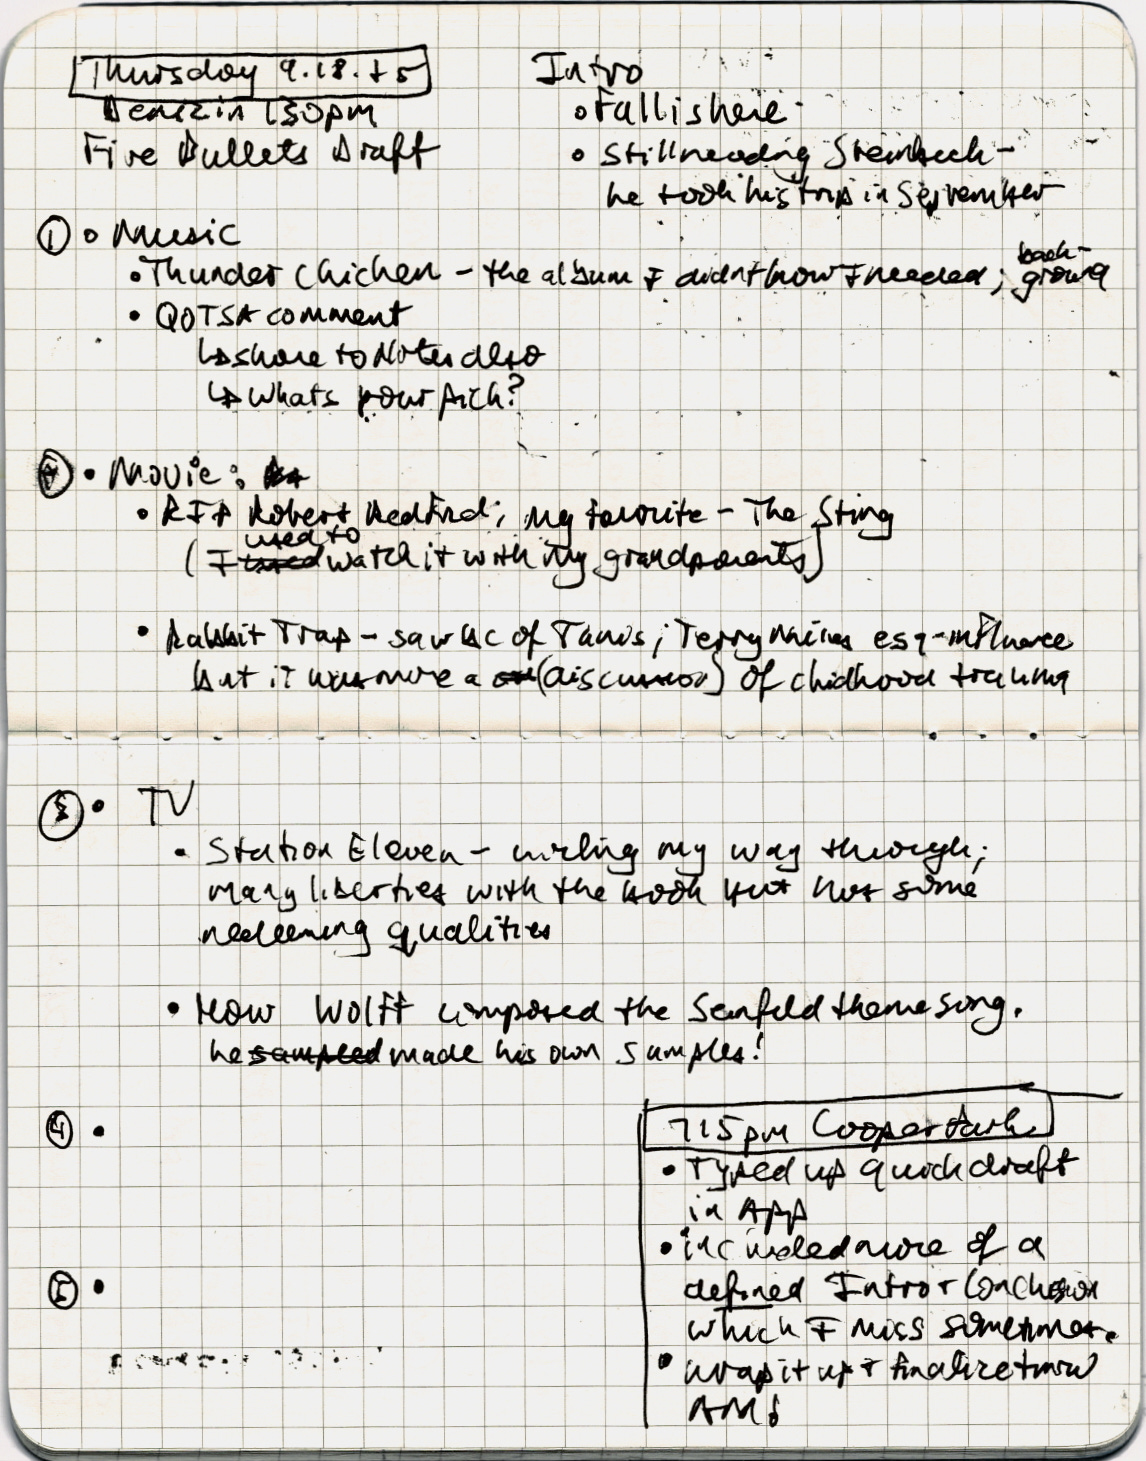 Thursday 9.18.25
Benzin 130pm
Five Bullets Draft
Intro
• Fall is here -
• Still reading Steinbeck -
he took his trip in September
① • Music
• Thunder Chicken - the album I didn't know I needed; back-ground
• QOTSA comment
↳ share to Notes also
↳ Whats your pick?
• Movie:
• RIP Robert Redford; My favorite - The Sting
(I used to watch it with my grandparents)
• Rabbit Trap - saw bc of Tanis; Terry Miles esq-influence
but it was more a (discussion) of childhood trauma
③ • TV
• Station Eleven - my way through;
many liberties with the book but has some
redeeming qualities
• How Wolff composed the Seinfeld theme song.
he sampled made his own samples!
④ •
⑤ •
715pm Cooper Park
• Typed up quick draft
in App
• included more of a
defined Intro + Conclusion
which I miss sometimes.
• wrap it up + finalize tmrw
AM!